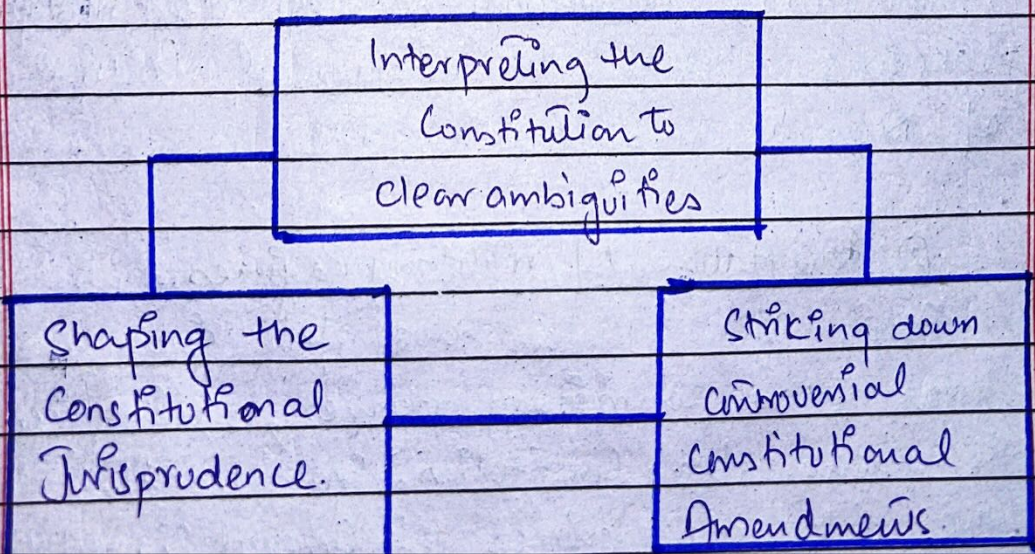 Interpreting the
Constitution to
clear ambiguities
Shaping the
Constitutional
Jurisprudence.
Striking down
controversial
constitutional
Amendments.